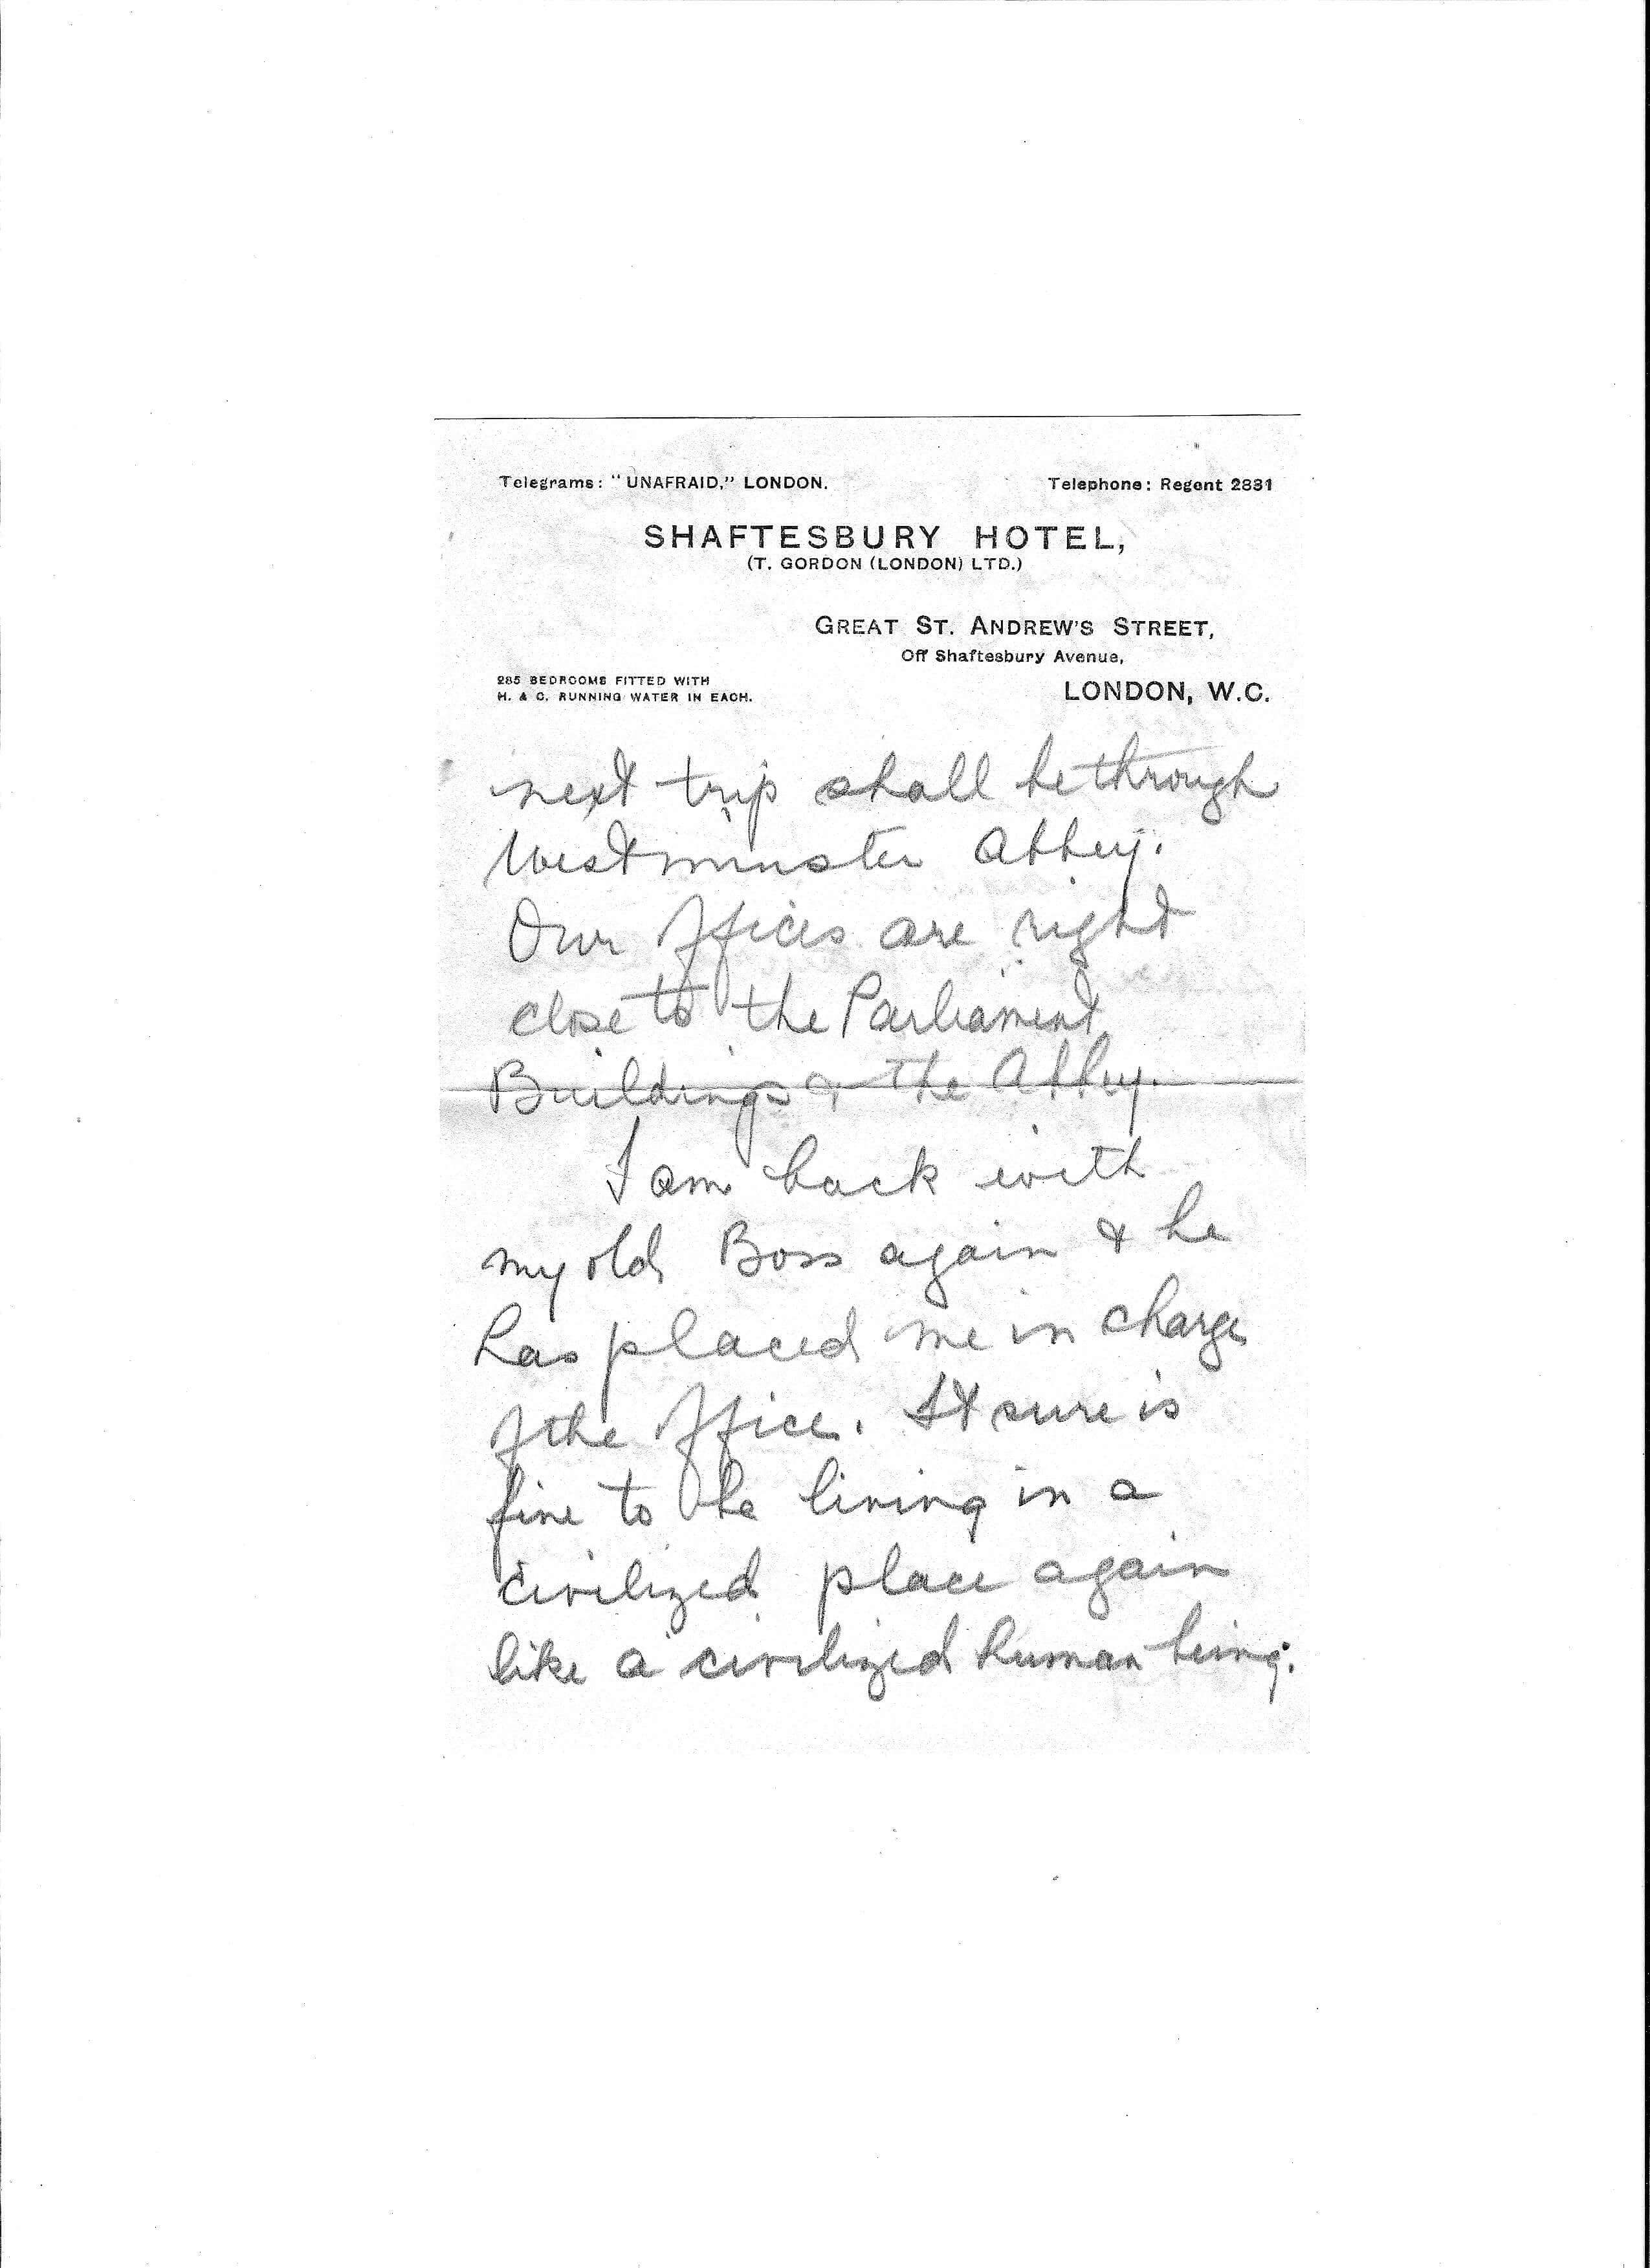 Telegrams: "UNAFRAID," LONDON. Telephone: Regent 2831
SHAFTESBURY HOTEL,
(T. GORDON (LONDON) LTD.)
GREAT ST. ANDREW'S STREET,
Off Shaftesbury Avenue,
285 BEDROOMS FITTED WITH
H. & C. RUNNING WATER IN EACH.
LONDON, W.C.
next trip shall be through
Westminster Abbey.
Our offices are right
close to the Parliament
Buildings & the Abbey.
I am back with
my old Boss again & he
has placed me in charge
of the office. It sure is
fine to be living in a
civilized place again
like a civilized human being.